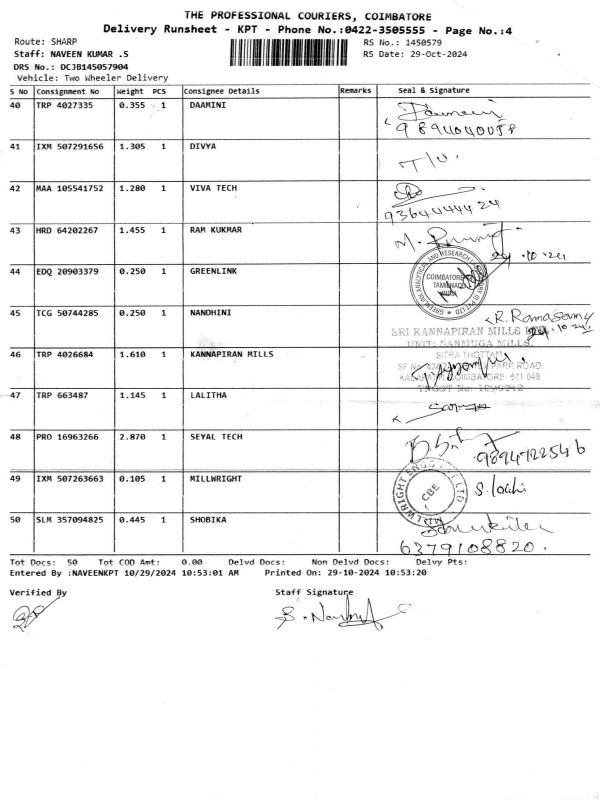 THE PROFESSIONAL COURIERS, COIMBATORE
Delivery Runsheet - KPT - Phone No.:0422-3505555 - Page No.:4
Route: SHARP
RS No.: 1450579
Staff: NAVEEN KUMAR .S
RS Date: 29-Oct-2024
DRS No.: DCJB145057904
Vehicle: Two Wheeler Delivery
S No Consignment No Weight PCS Consignee Details Remarks Seal & Signature
40 TRP 4027335 0.355 1 DAAMINI
9894040058
41 IXM 507291656 1.305 1 DIVYA
T/U.
42 MAA 105541752 1.280 1 VIVA TECH
9364444424
43 HRD 64202267 1.455 1 RAM KUKMAR
29.10.24
44 EDQ 20903379 0.250 1 GREENLINK
COIMBATORE
TAMILNADU
INDIA
45 TCG 50744285 0.250 1 NANDHINI
R.Ramasamy
29.10.24
SRI KANNAPIRAN MILLS
UNIT: SANMUGA MILLS
46 TRP 4026684 1.610 1 KANNAPIRAN MILLS
PARK ROAD
COIMBATORE- 641 048
47 TRP 663487 1.145 1 LALITHA
48 PRO 16963266 2.870 1 SEYAL TECH
9894722546
49 IXM 507263663 0.105 1 MILLWRIGHT
MILLWRIGHT ENGG PVT LTD
CBE
50 SLM 357094825 0.445 1 SHOBIKA
6379108820.
Tot Docs: 50 Tot COD Amt: 0.00 Delvd Docs: Non Delvd Docs: Delvy Pts:
Entered By :NAVEENKPT 10/29/2024 10:53:01 AM Printed On: 29-10-2024 10:53:20
Verified By Staff Signature